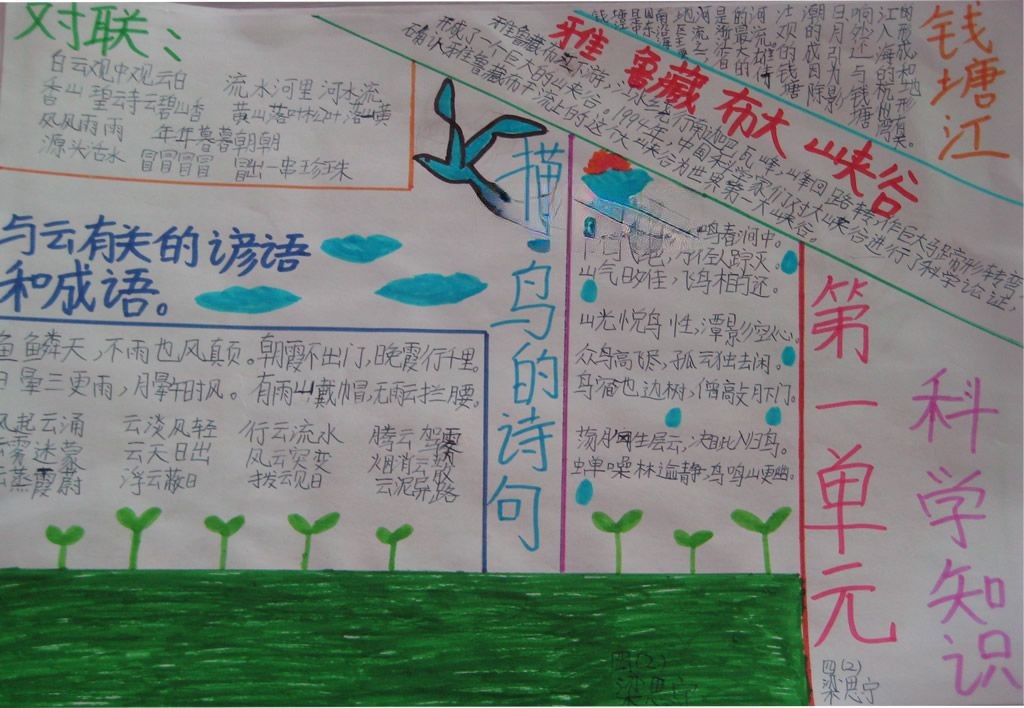 对联：
白云观中观云白
香山碧云寺云碧山香
风风雨雨
源头活水
流水河里河水流
黄山落叶松叶落山黄
年年暮暮朝朝
冒冒冒冒 冒出一串珍珠
与云有关的谚语
和成语。
鱼鳞天，不雨也风真页。朝霞不出门，晚霞行千里。
日晕三更雨，月晕午时风。有雨山戴帽，无雨云拦腰。
风起云涌 云淡风轻 行云流水 腾云驾雾
云雾迷蒙 云天日出 风云突变 烟消云散
云蒸霞蔚 浮云蔽日 拨云见日 云泥异路
描鸟的诗句
鸣春涧中。
山气日夕佳，飞鸟相与还。
山光悦鸟性，潭影空人心。
众鸟高飞尽，孤云独去闲。
鸟宿池边树，僧敲月下门。
荡胸生层云，决眦入归鸟。
蝉噪林逾静，鸟鸣山更幽。
雅鲁藏布大峡谷
雅鲁藏布江下游，江水绕行南迦巴瓦峰，峰回路转，作巨大马蹄形转弯，
形成了一个巨大的峡谷。1994年，中国科学家们对大峡谷进行了科学论证，
确认雅鲁藏布干流上的这个大峡谷为世界第一大峡谷。
钱塘江
第一单元
科学知识
四(2)
梁思宁
四(2)
梁思宁